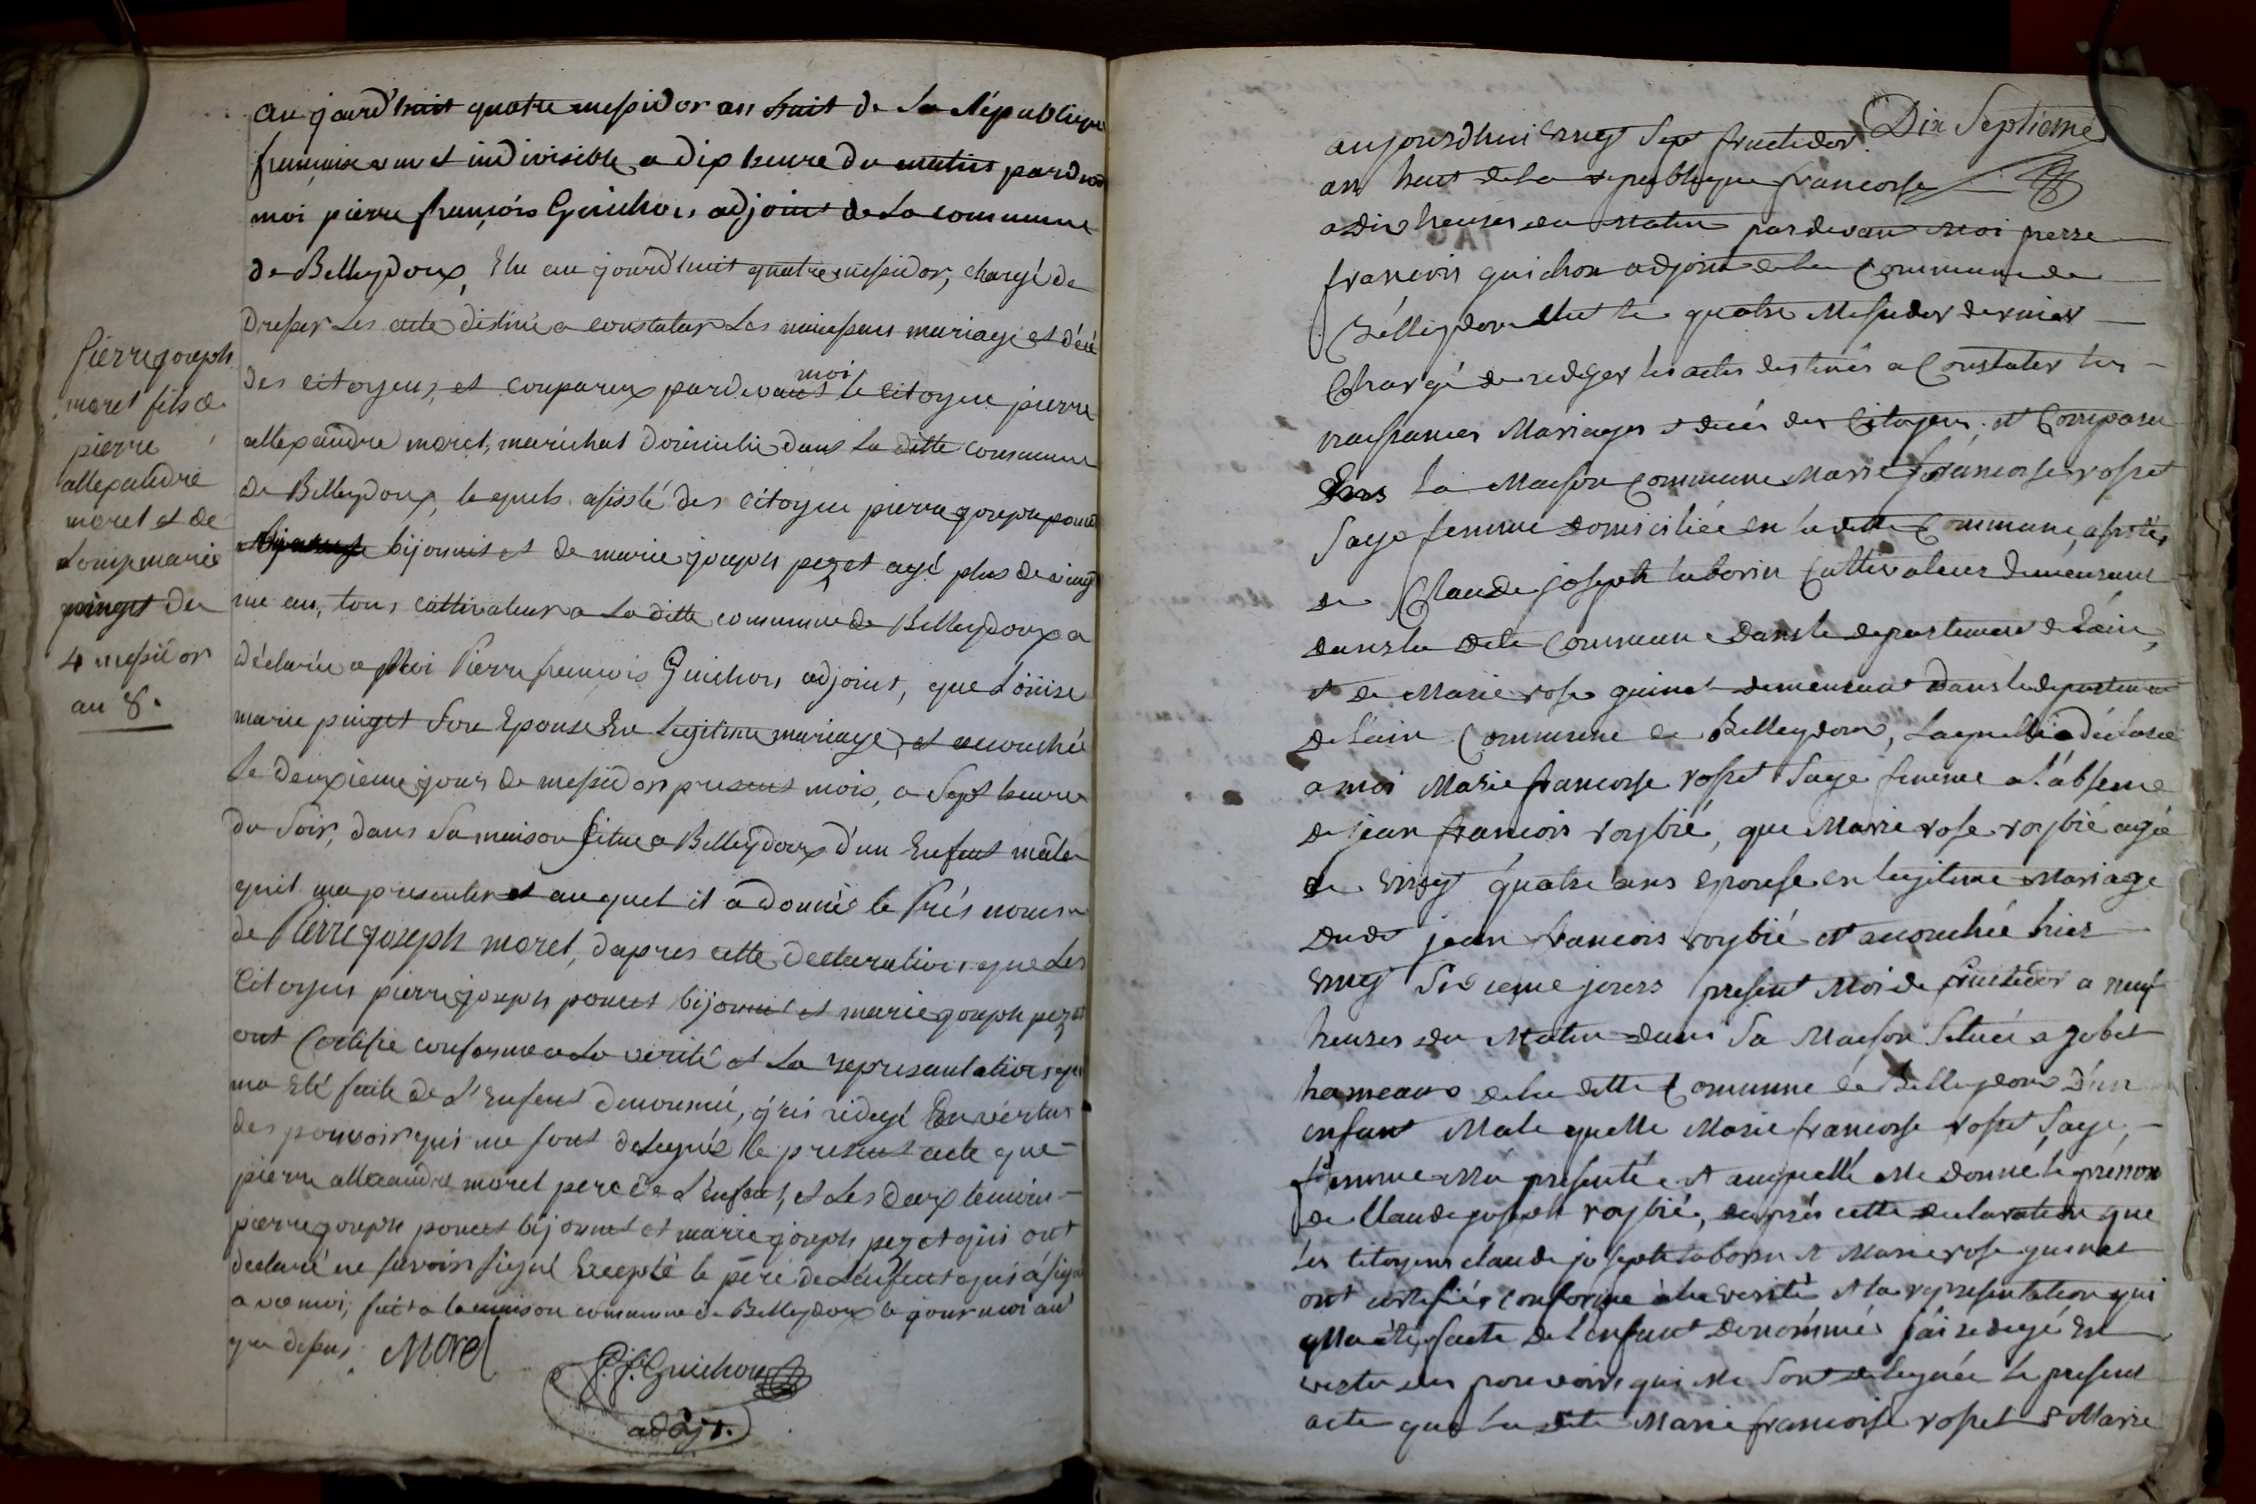 pierre joseph
moret fils de
pierre
allexandre
moret et de
Louise marie
pinget du
4 messidor
an 8.
au jourd'huit quatre messidor an huit de la République
francaise une et indivisible a dix heure du matin pardevant
moi pierre françois Guichon adjoint de la commune
de Belleydoux, Elu au jourd'huit quatre messidor, chargé de
dresser les acte destiné a constater les naissances mariage et décé
des citoyens, et comparux pardevant moi le citoyen pierre
allexandre moret, maréchal domicilié dans la ditte commune
de Belleydoux, lequels assisté des citoyen pierre joseph poncet
bijonnet et de marie joseph pezet agé plus de vingt
un an, tous cultivateur a la ditte commune de Belleydoux a
déclarée a Moi Pierre francois Guichon adjoint, que Loüise
marie pinget son Epouse En legitime mariage, et acouchée
le deuxieme jour de messidor present mois, a Sept heure
du Soir, dans sa maison situe a Belleydoux d'un Enfent mâle
qu'il ma presenter et au quel il a donnée le Prés noms
de Pierre joseph moret, daprès cette declaration que les
Citoyen pierre joseph poncet bijonnet et marie joseph pezet
ont Certifie conforme a la verité et la representation qui
ma Eté faite de l'Enfent denommé, j'ai rédigé En vertus
des pouvoir qui me sont delegués le present acte que
pierre allexandre moret pere de L'enfent, et Les deux temoin
pierre joseph poncet bijonnet et marie joseph pezet qui ont
declaré ne savoir signé Excepté le père de L'enfent qui a signé
avec moi, fait a la maison commune de Belleydoux le jour moi an
que dessus. Morel
P. f. Guichon
adojt.
Dix Septieme
aujourdhui vingt Sept fructidor
an huit de la republique francoise
a Dix heures du Matin pardevant Moi pierre
francois guichon adjoint de la Commune de
Bélleydoux Elut le quatre Messidor dernier
Chargé de rediger les actes destinés a Constater les
naissances Mariages & décés des Citoyens, et Comparu
Dans la Maison Commune Marie francoise rosset
Sage femme domiciliée en ladette Commune, assistés
de Claude joseph laborin Cultivateur demeurant
dans la dite Commune dans le departement de L'ain,
et de Marie rose guinet demeurant Dans le departement
de L'ain Commune de Belleydoux, laquelle a déclarée
a moi Marie francoise rosset Sage femme a l'absence
de jean francois roybié, que Marie rose roybié agée
de vingt quatre ans epouse en legitime Mariage
Dudt jean francois roybié et acouchée hier
vingt Sixieme jours present Moi de fructidor a neuf
heures du Matin dans Sa Maison Située a gobet
hameaux de la ditte Commune de Belleydoux D'un
enfant Male quelle Marie francoise rosset Sage,
femme Ma presentée et auquelle elle donné le prénom
de Claude joseph roybié, daprés cette declaration que
les Citoyens claude joseph laborin et Marie rose guinet
ont certifiée conforme à la verité et la representation qui
Ma été faite de L'enfant dénommé j'ai redigé En
vertu des pouvoirs qui Me Sont deleguée le present
acte que la dite Marie francoise rosset & Marie